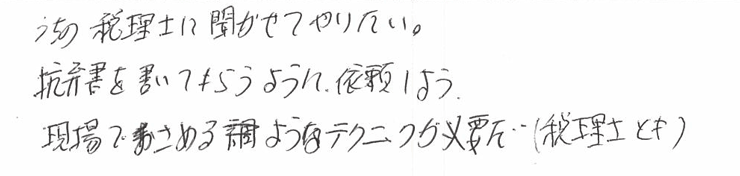 うちの税理士に聞かせてやりたい。
抗弁書を書いてもらうように、依頼しよう。
現場でおさめるようなテクニックが必要だ‥(税理士とも)